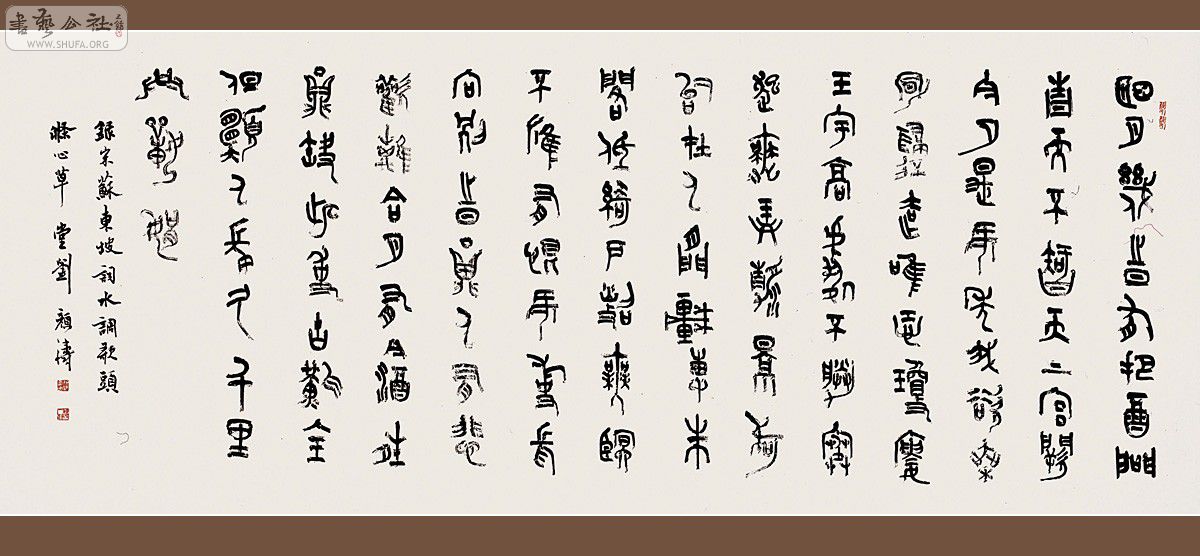 書藝公社
WWW.SHUFA.ORG
明月幾時有把酒問
青天不知天上宮闕
今夕是何年我欲乘
風歸去唯恐瓊樓
玉宇高處不勝寒
起舞弄清影何
似在人間轉朱
閣低綺戶照無眠
不應有恨何事長
向別時圓人有悲
歡離合月有陰晴
圓缺此事古難全
但願人長久千里
共嬋娟
錄宋蘇東坡詞水調歌頭
滌心草堂劉顏濤